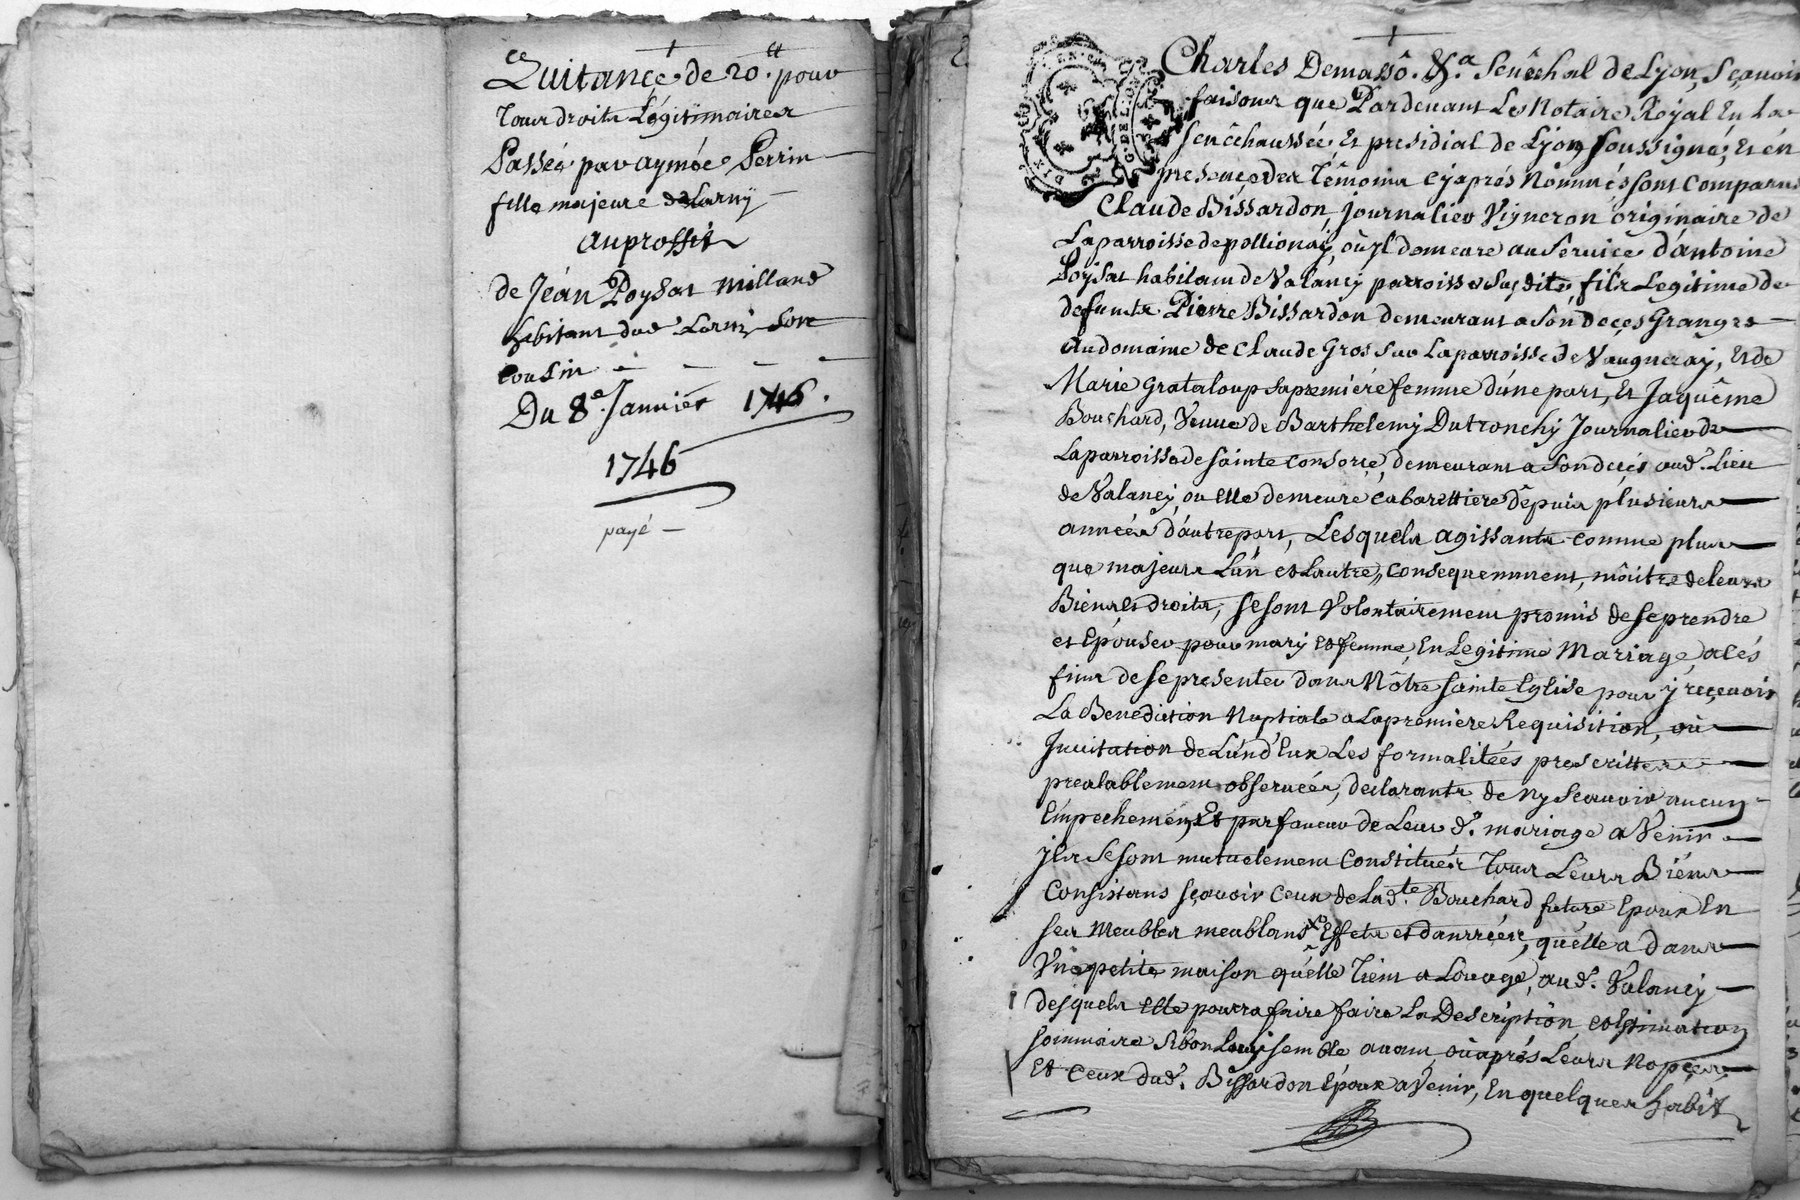 Quitance de 20.tt pour
Tous droits Légitimaires
Passée par aymée Perrin
fille majeure de Larny
auproffit
de Jéan Poysat Milland
habitant dud. Larni son
cousin
Du 8e. Janvier 1746.
1746
payé
Charles Demassô. &.a Senêchal de Lyon, Sçavoir
faisons que Pardevant Le Notaire Royal En La
senêchaussée Et presidial de Lyon soussigné, Et én
presence des Témoins cyaprés Nommés sont Comparus
Claude Bissardon, Journalier Vigneron originaire de
Laparroisse de pollionaÿ, où yl demeure au Service d'antoine
Poysat habitant de Valancy parroisse Susdite, fils Legitime de
defunts Pierre Bissardon demeurant a Són Deçes Granger
Au domaine de Claude Gros Sur Laparroisse de Vaugneraÿ, Et de
Marie Grataloup sa premiére femme d'une part, Et Jaquême
Bouchard, Veuve de Barthelemy Dutronchy Journalier de
Laparroisse de sainte Consorce, demeurant a Son decés aud. Lieu
de Valancy, ou Elle demeure Cabarettiere Dêpuis plusieurs
années d'autre part, Lesquels agissants comme plus
que majeurs L'un et Lautre, consequemment, môitre de leurs
Biens et droits, se sont Volontairement promis de se prendre
et Epouser pour mary Et femme, En Legitime Mariage, a lés
fins de se presenter dans Nôtre Sainte Eglise pour y reçevoir
La Benediction Nuptiale a La premiere Requisition, où
Invitation de L'un d'Eux Les formalitées prescrittes
prealablement observées, declarants de Ny Scavoir aucun
Empechement, Et par faveur de Leur d. mariage a Venir
yls se sont mutuelement Constitués Tous Leurs Biéns
Consistans sçavoir Ceux de Lad.te Bouchard future Epoux En
ses Meubles meublans, Effets et danrrées, qu'elle a dans
Une petite maison qu'elle Tient a Loüage, aud. Valancy
desquels Elle pourra faire faire La Description, estimation
sommaire Si bon Luy semble avant, où aprés Leurs Nopçes,
Et Ceux dud. Bissardon Epoux a Venir, En quelques habit